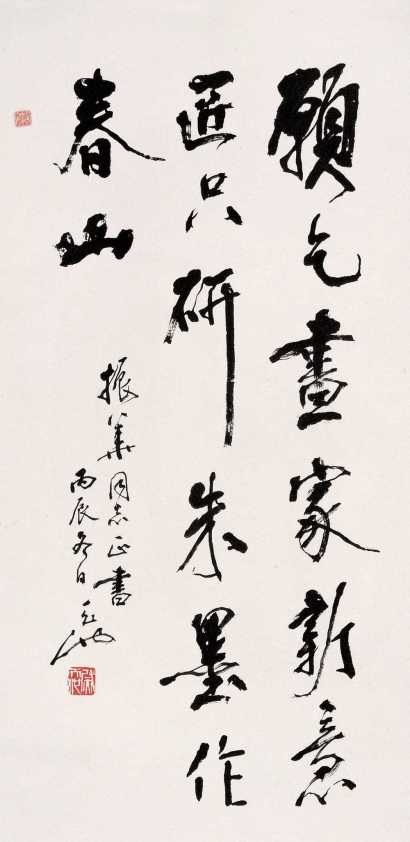 願乞畫家新意
匠只研朱墨作
春山
振華同志正書
丙辰冬日